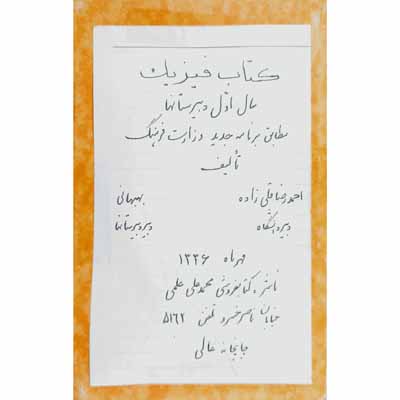 کتاب فیزیک
سال اول دبیرستانها
مطابق برنامه جدید وزارت فرهنگ
تألیف
احمدرضا قلی زاده بهبهانی
دبیر دانشگاه دبیر دبیرستانها
مهرماه ۱۳۳۶
ناشر: کتابفروشی محمد علی علمی
خیابان ناصر خسرو تلفن ۵۱۶۲
چاپخانه عالی